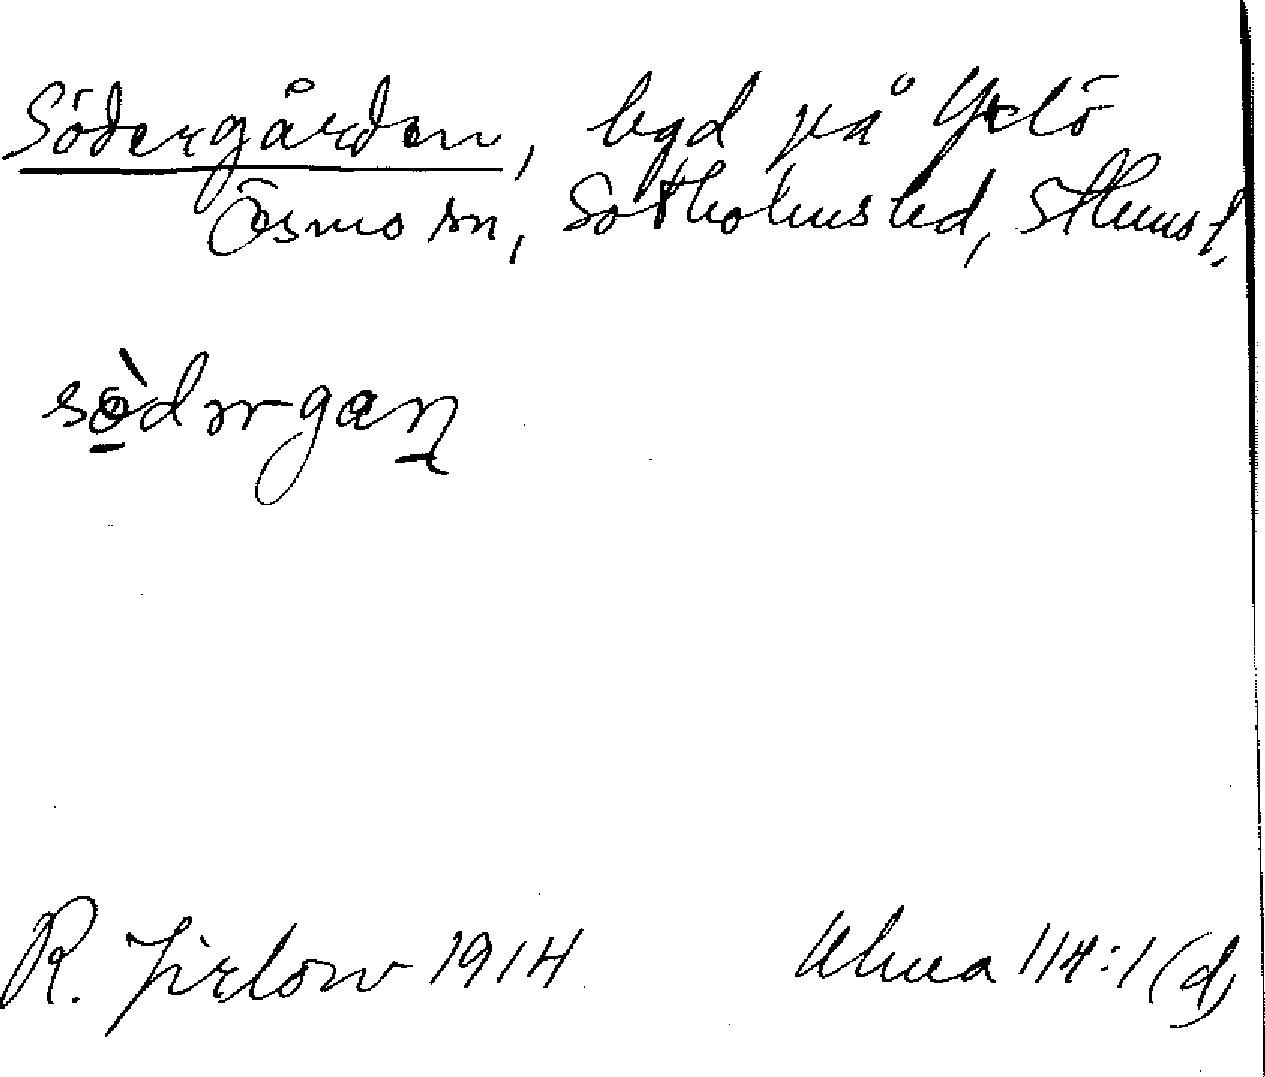 Södergården, bgd på Yxlö
Ösmo sn, Sotholms hd, Sthms l.
södərgaṉ
R. Jirlow 1914
Ulma 114:1 (d)